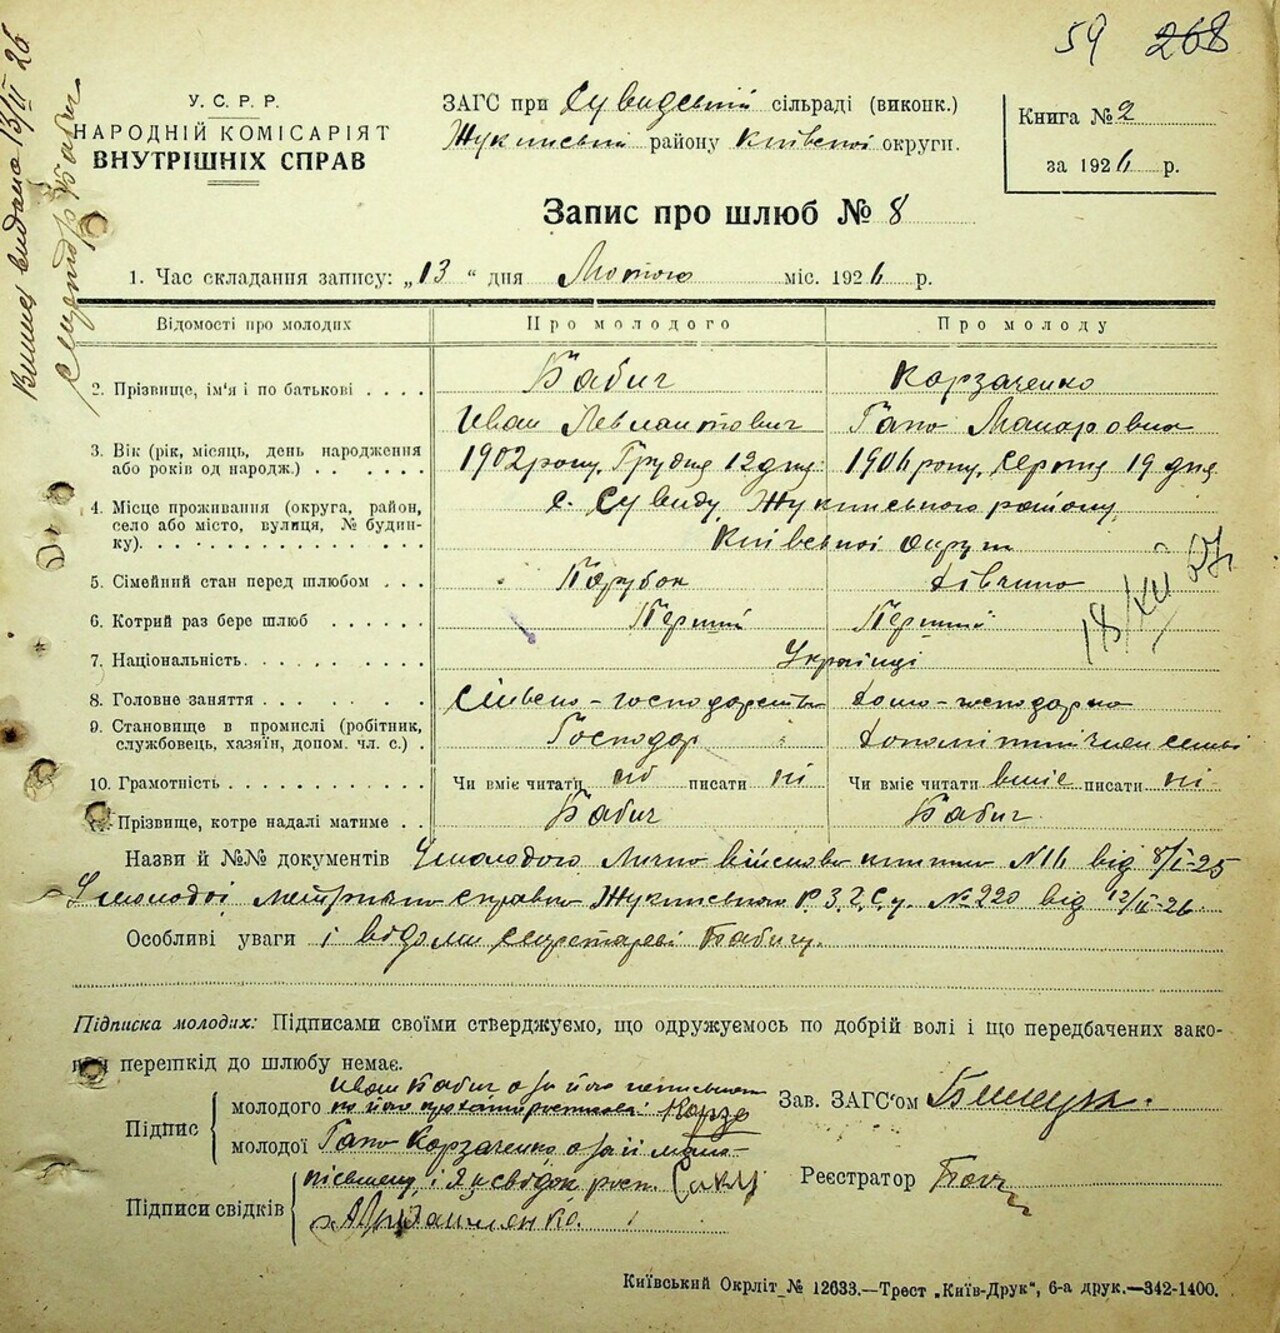 59 268
Випис видано 13/II 26
Секретар Бабич
У. С. Р. Р.
НАРОДНІЙ КОМІСАРІЯТ
ВНУТРІШНІХ СПРАВ
ЗАГС при Сувидській сільраді (виконк.)
Жукинській району Київської округи.
Книга № 2
за 1926 р.
Запис про шлюб № 8
1. Час складання запису: „13" дня Лютого міс. 1926 р.
Відомості про молодих Про молодого Про молоду
2. Прізвище, ім'я і по батькові . . . . Бабич Корзаченко
Иван Левлантович Гапа Макаровна
3. Вік (рік, місяць, день народження або років од народж.) . . . . . . 1902 року, Грудня 12 дня 1906 року, серпня 19 дня
4. Місце проживання (округа, район, село або місто, вулиця, № будинку). . . . . . . . . . . . . . . с. Сувиду, Жукинського району,
Київської округи
5. Сімейний стан перед шлюбом . . . Парубок Дівчина
6. Котрий раз бере шлюб . . . . . . Перший Перший
7. Національність. . . . . . . . . . Українці
8. Головне заняття . . . . . . . . . Сільсько-господарство домо-господарка
9. Становище в промислі (робітник, службовець, хазяїн, допом. чл. с.) . Господар допомітний член семьі
10. Грамотність . . . . . . . . . . . Чи вміє читати писати ні Чи вміє читати вміє писати ні
Прізвище, котре надалі матиме . . Бабич Бабич
Назви й №№ документів У молодого Лично військова книжка N 16 від 8/I-25
У молодоі метрична справка Жукинського Р.З.Г.С.у. № 220 від 12/II-26
Особливі уваги і відоми секретареві Бабичу.
Підписка молодих: Підписами своїми стверджуємо, що одружуємось по добрій волі і що передбачених зако-
ном перешкід до шлюбу немає.
Підпис
молодого Иван Бабич а за його неписьмен
по його проханню росписався
молодої Гапа Корзаченко, а за ії мало-
Зав. ЗАГС'ом
Підписи свідків письмену, і як свідок росп.
Реєстратор
Київський Окрліт № 12633.—Трест „Київ-Друк", 6-а друк.—342-1400.